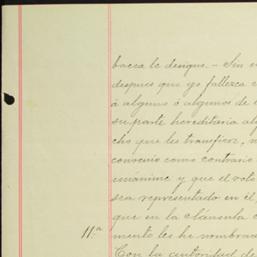 bacea le designe.- Sin e
despues que yo fallezca c
á alguno ó algunos de e
su parte hereditaria alg
cho que les transfiere, n
convenio como contrario
unánime y que el voto
sea representado en él,
que en la cláusula c
11.ª mento les he nombrad
Con la autoridad de